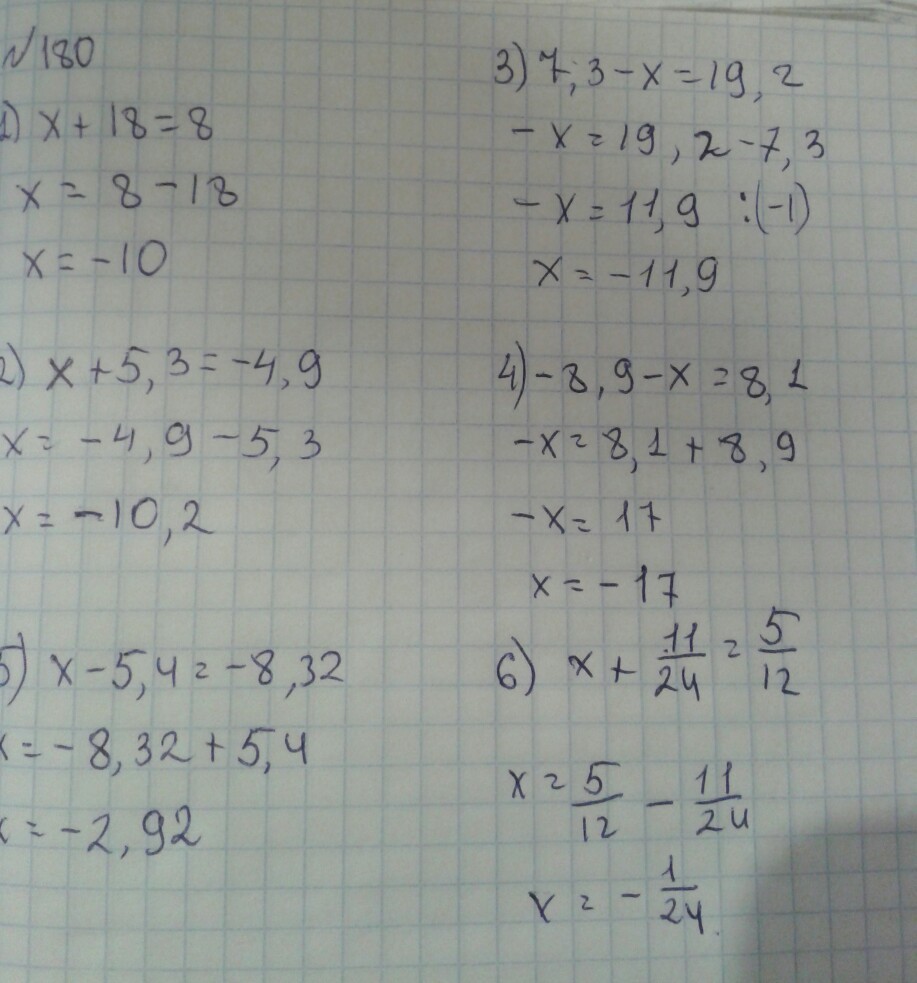 №180
1) x + 18 = 8
x = 8 - 18
x = -10
2) x + 5,3 = -4,9
x = -4,9 - 5,3
x = -10,2
5) x - 5,4 = -8,32
x = -8,32 + 5,4
x = -2,92
3) 7,3 - x = 19,2
-x = 19,2 - 7,3
-x = 11,9 :(-1)
x = -11,9
4) -8,9 - x = 8,1
-x = 8,1 + 8,9
-x = 17
x = -17
6) x + 11/24 = 5/12
x = 5/12 - 11/24
x = - 1/24.